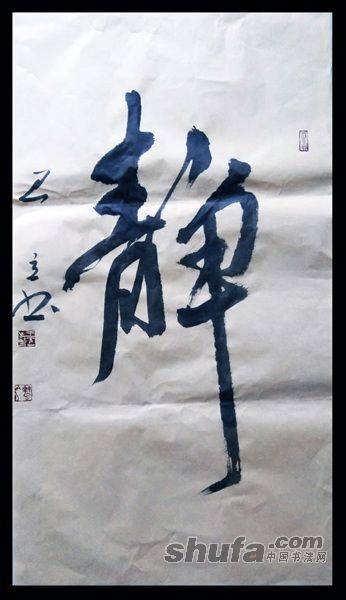 静
王立书
shufa.com
中国书法网